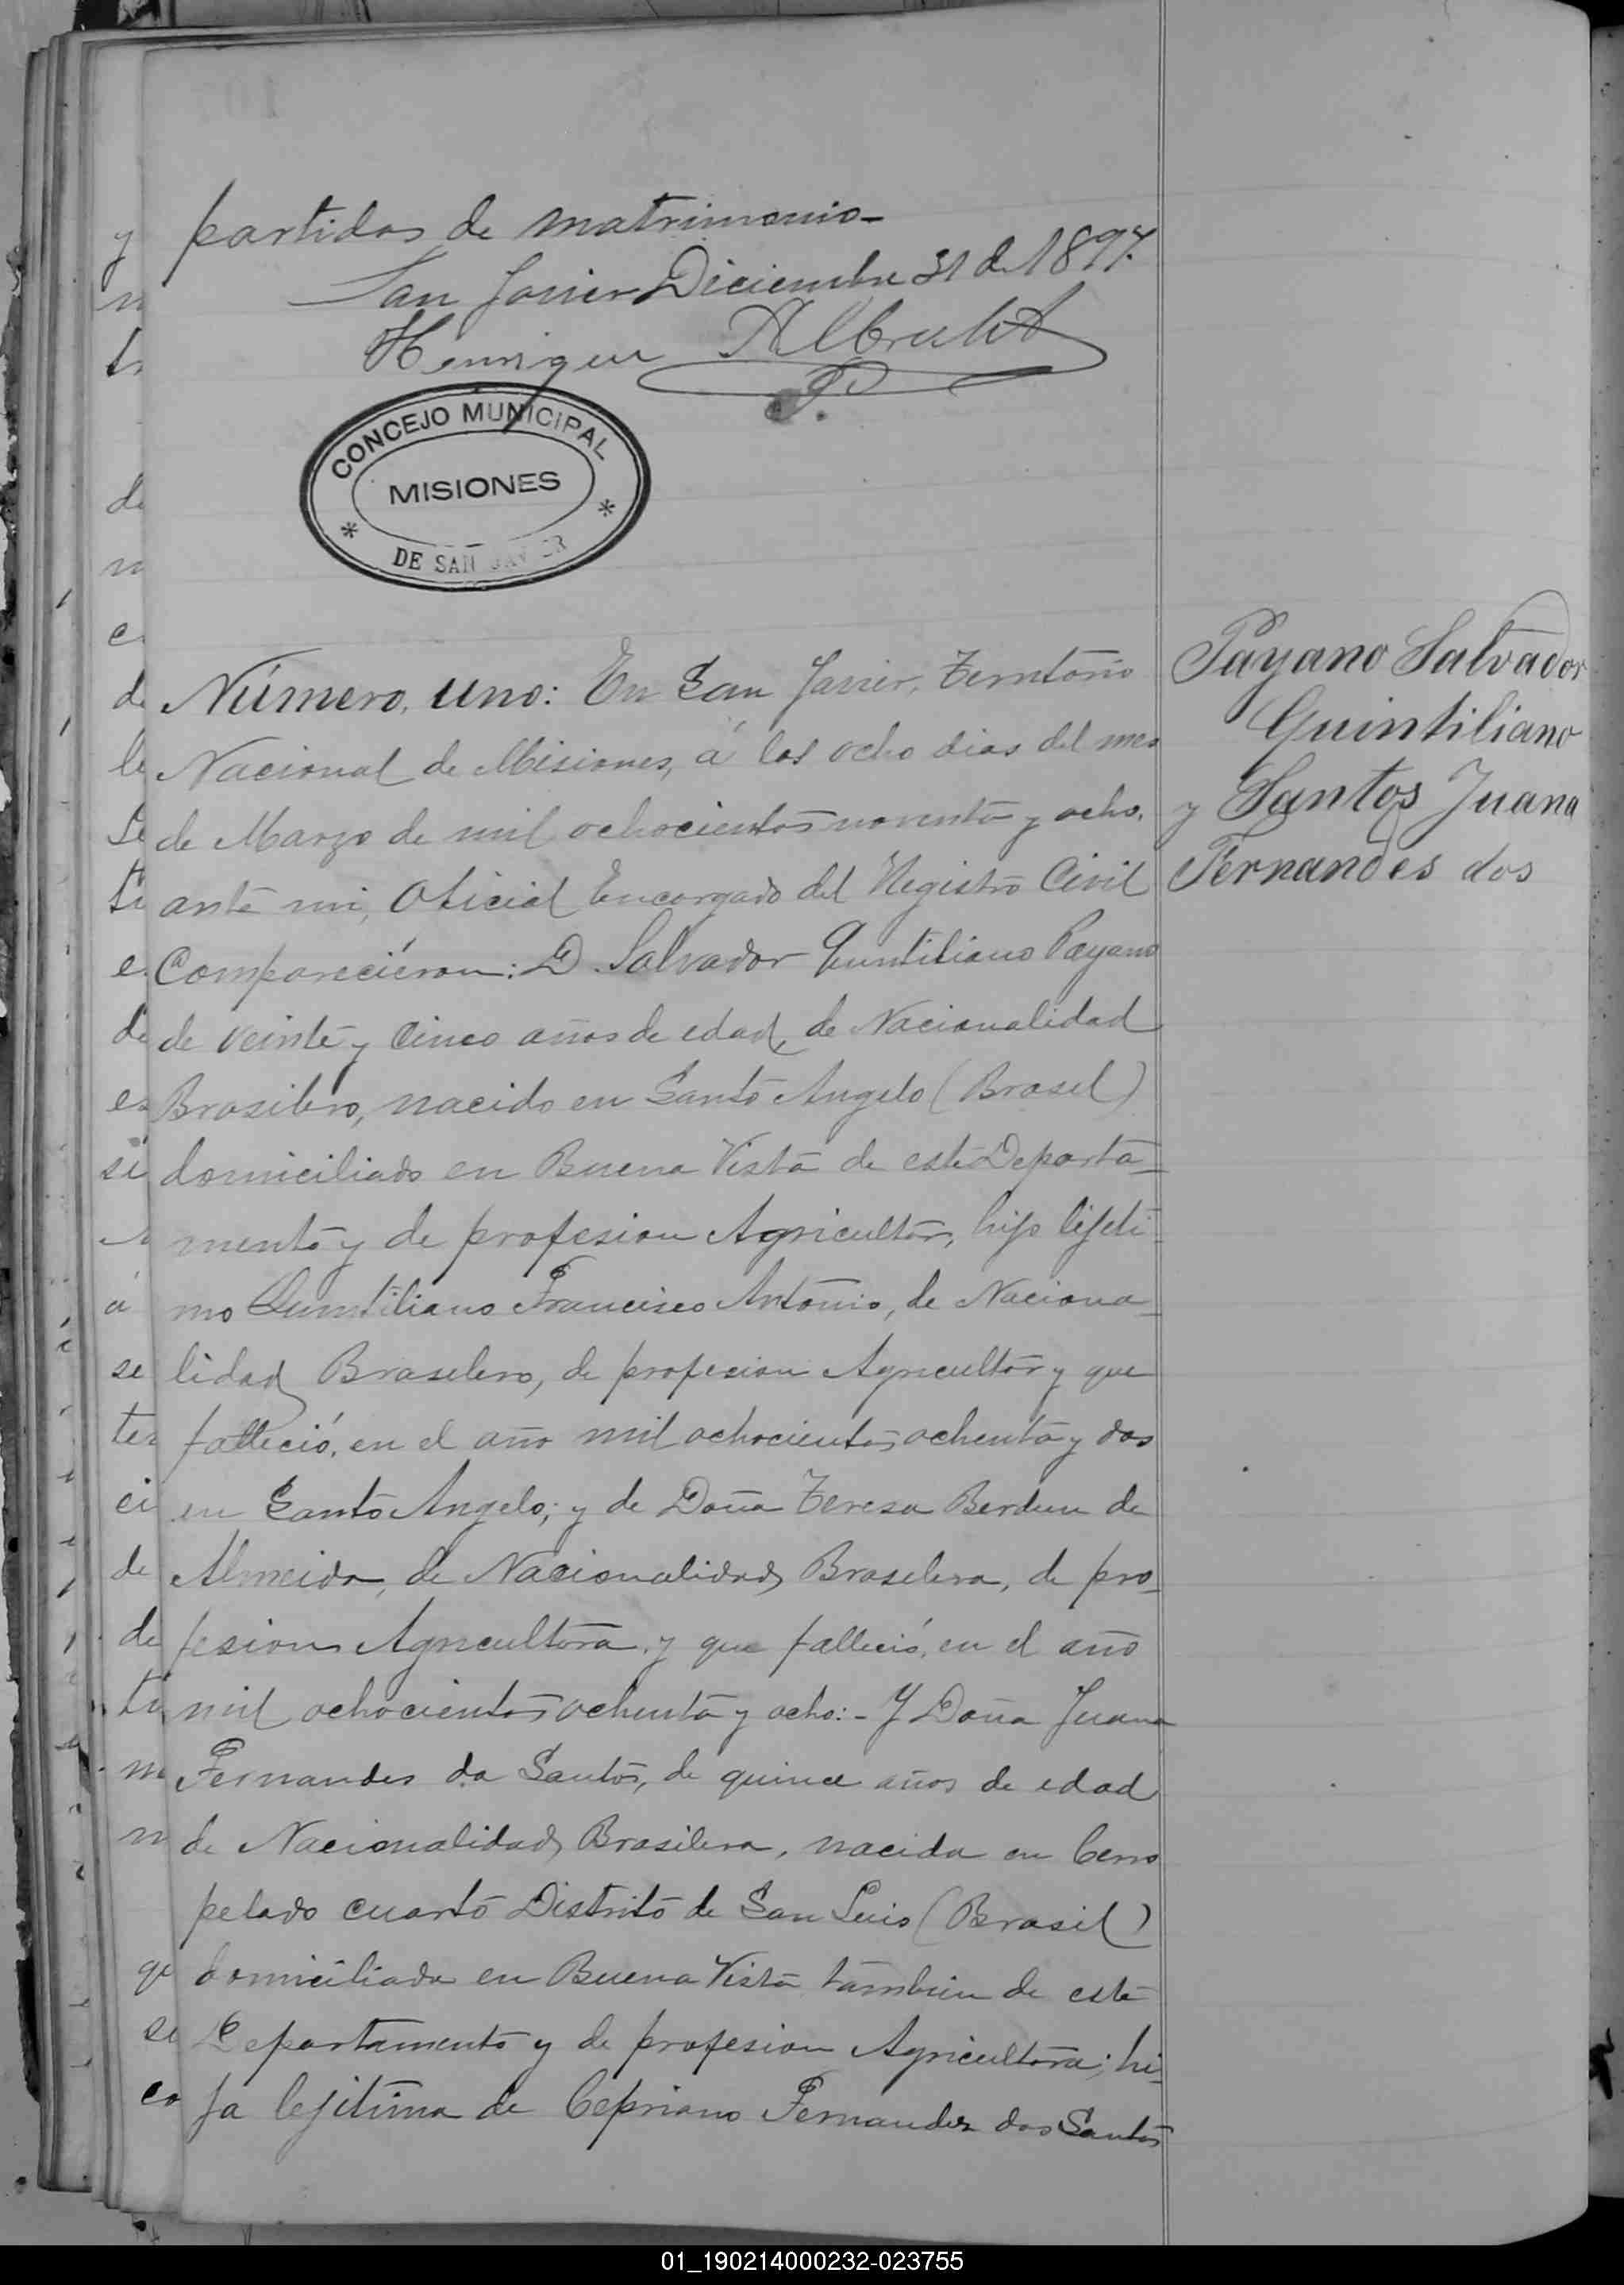 partidas de matrimonio-
San Javier Diciembre 31 de 1897.
Henrique Albrecht
CONCEJO MUNICIPAL
MISIONES
DE SAN JAVIER
Número, uno: En San Javier, Territorio
Nacional de Misiones, á los ocho dias del mes
de Marzo de mil ochocientos noventa y ocho,
ante mi, Oficial Encargado del Registro Civil
Compareciéron: D. Salvador Quintiliano Payano
de veinte y cinco años de edad, de Nacionalidad
Brasilero, nacido en Santo Angelo (Brasel)
domiciliado en Buena Vista de este Departa-
mento y de profesion Agricultor, hijo lejiti-
mo Quintiliano Francisco Antonio, de Naciona-
lidad Braselero, de profecion Agricultor y que
falleció, en el año mil ochocientos ochenta y dos
en Santo Angelo; y de Doña Teresa Berdun de
Almeida, de Nacionalidad Braselera, de pro-
fesion Agricultora y que falleció, en el año
mil ochocientos ochenta y ocho:- Y Doña Juana
Fernandes da Santos, de quince años de edad
de Nacionalidad Brasilera, nacida en Cerro
pelado cuarto Distrito de San Luis (Brasil)
domiciliada en Buena Vista tambien de este
Departamento y de profesion Agricultora; hi-
ja lejitima de Cepriano Fernandez dos Santos
Payano Salvador
Quintiliano
y Santos Juana
Fernandes dos
01_190214000232-023755